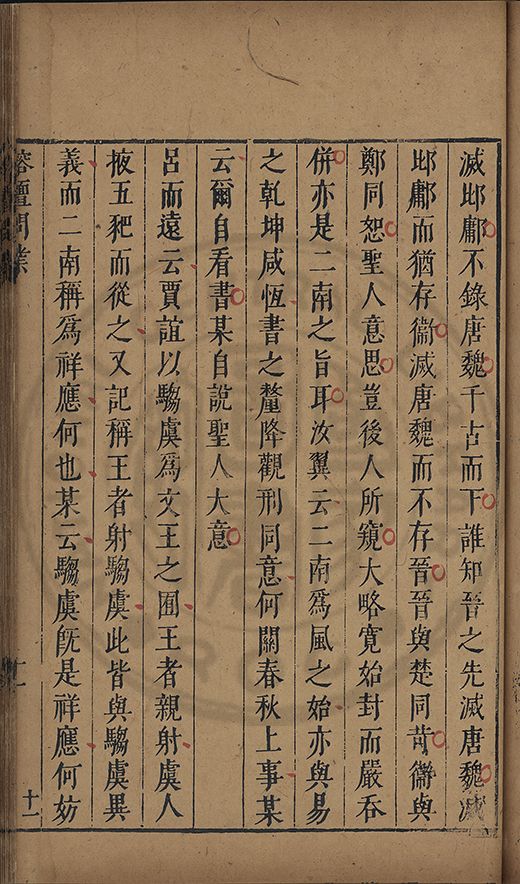 滅邶鄘不錄唐魏千古而下誰知晉之先滅唐魏滅
邶鄘而猶存衞滅唐魏而不存晉晉與楚同苛衞與
鄭同恕聖人意思豈後人所窺大略寛始封而嚴吞
併亦是二南之旨耳汝翼云二南爲風之始亦與易
之乾坤咸恆書之釐降觀刑同意何關春秋上事某
云爾自看書某自說聖人大意
呂而遠云賈誼以騶虞爲文王之囿王者親射虞人
掖五豝而從之又記稱王者射騶虞此皆與騶虞異
義而二南稱爲祥應何也某云騶虞旣是祥應何妨
榕壇問業
十一